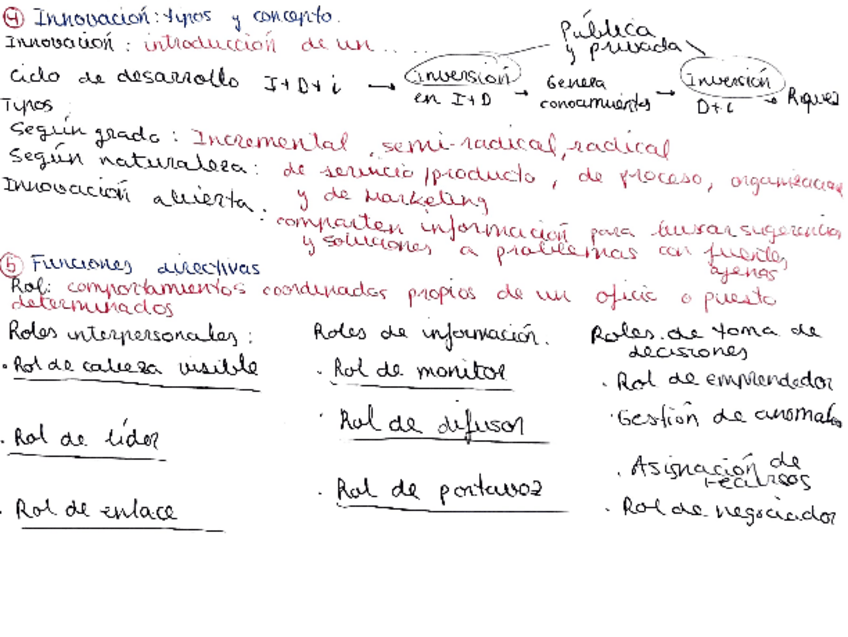 ④ Innovación: tipos y concepto.
Innovación: introducción de un .....
Pública
y privada
Ciclo de desarrollo I+D+i → Inversión → Genera → Inversión → Riqueza
en I+D conocimientos D+i
Tipos
Según grado: Incremental, semi-radical, radical
Según naturaleza: de servicio/producto, de proceso, organización
y de Marketing
Innovación abierta: comparten información para buscar sugerencias
y soluciones a problemas con fuentes
ajenas
⑤ Funciones directivas
Rol: comportamientos coordinados propios de un oficio o puesto
determinados
Roles interpersonales: Roles de información. Roles de toma de
decisiones
· Rol de cabeza visible · Rol de monitor · Rol de emprendedor
· Rol de líder · Rol de difusor · Gestión de anomalías
· Rol de enlace · Rol de portavoz · Asignación de
recursos
· Rol de negociador